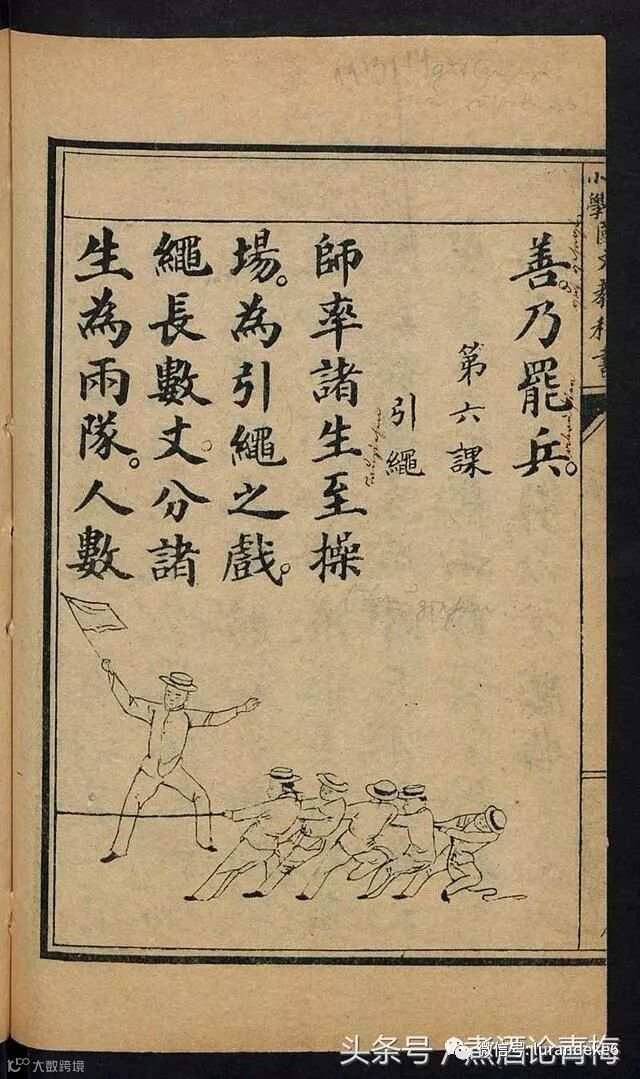 小學國文教科書
善。乃罷兵。
第六課
引繩
師率諸生至操
場。為引繩之戲。
繩長數丈。分諸
生為兩隊。人數
头条号 / 煮酒论青梅
微信号: lurandeke6
大数跨境